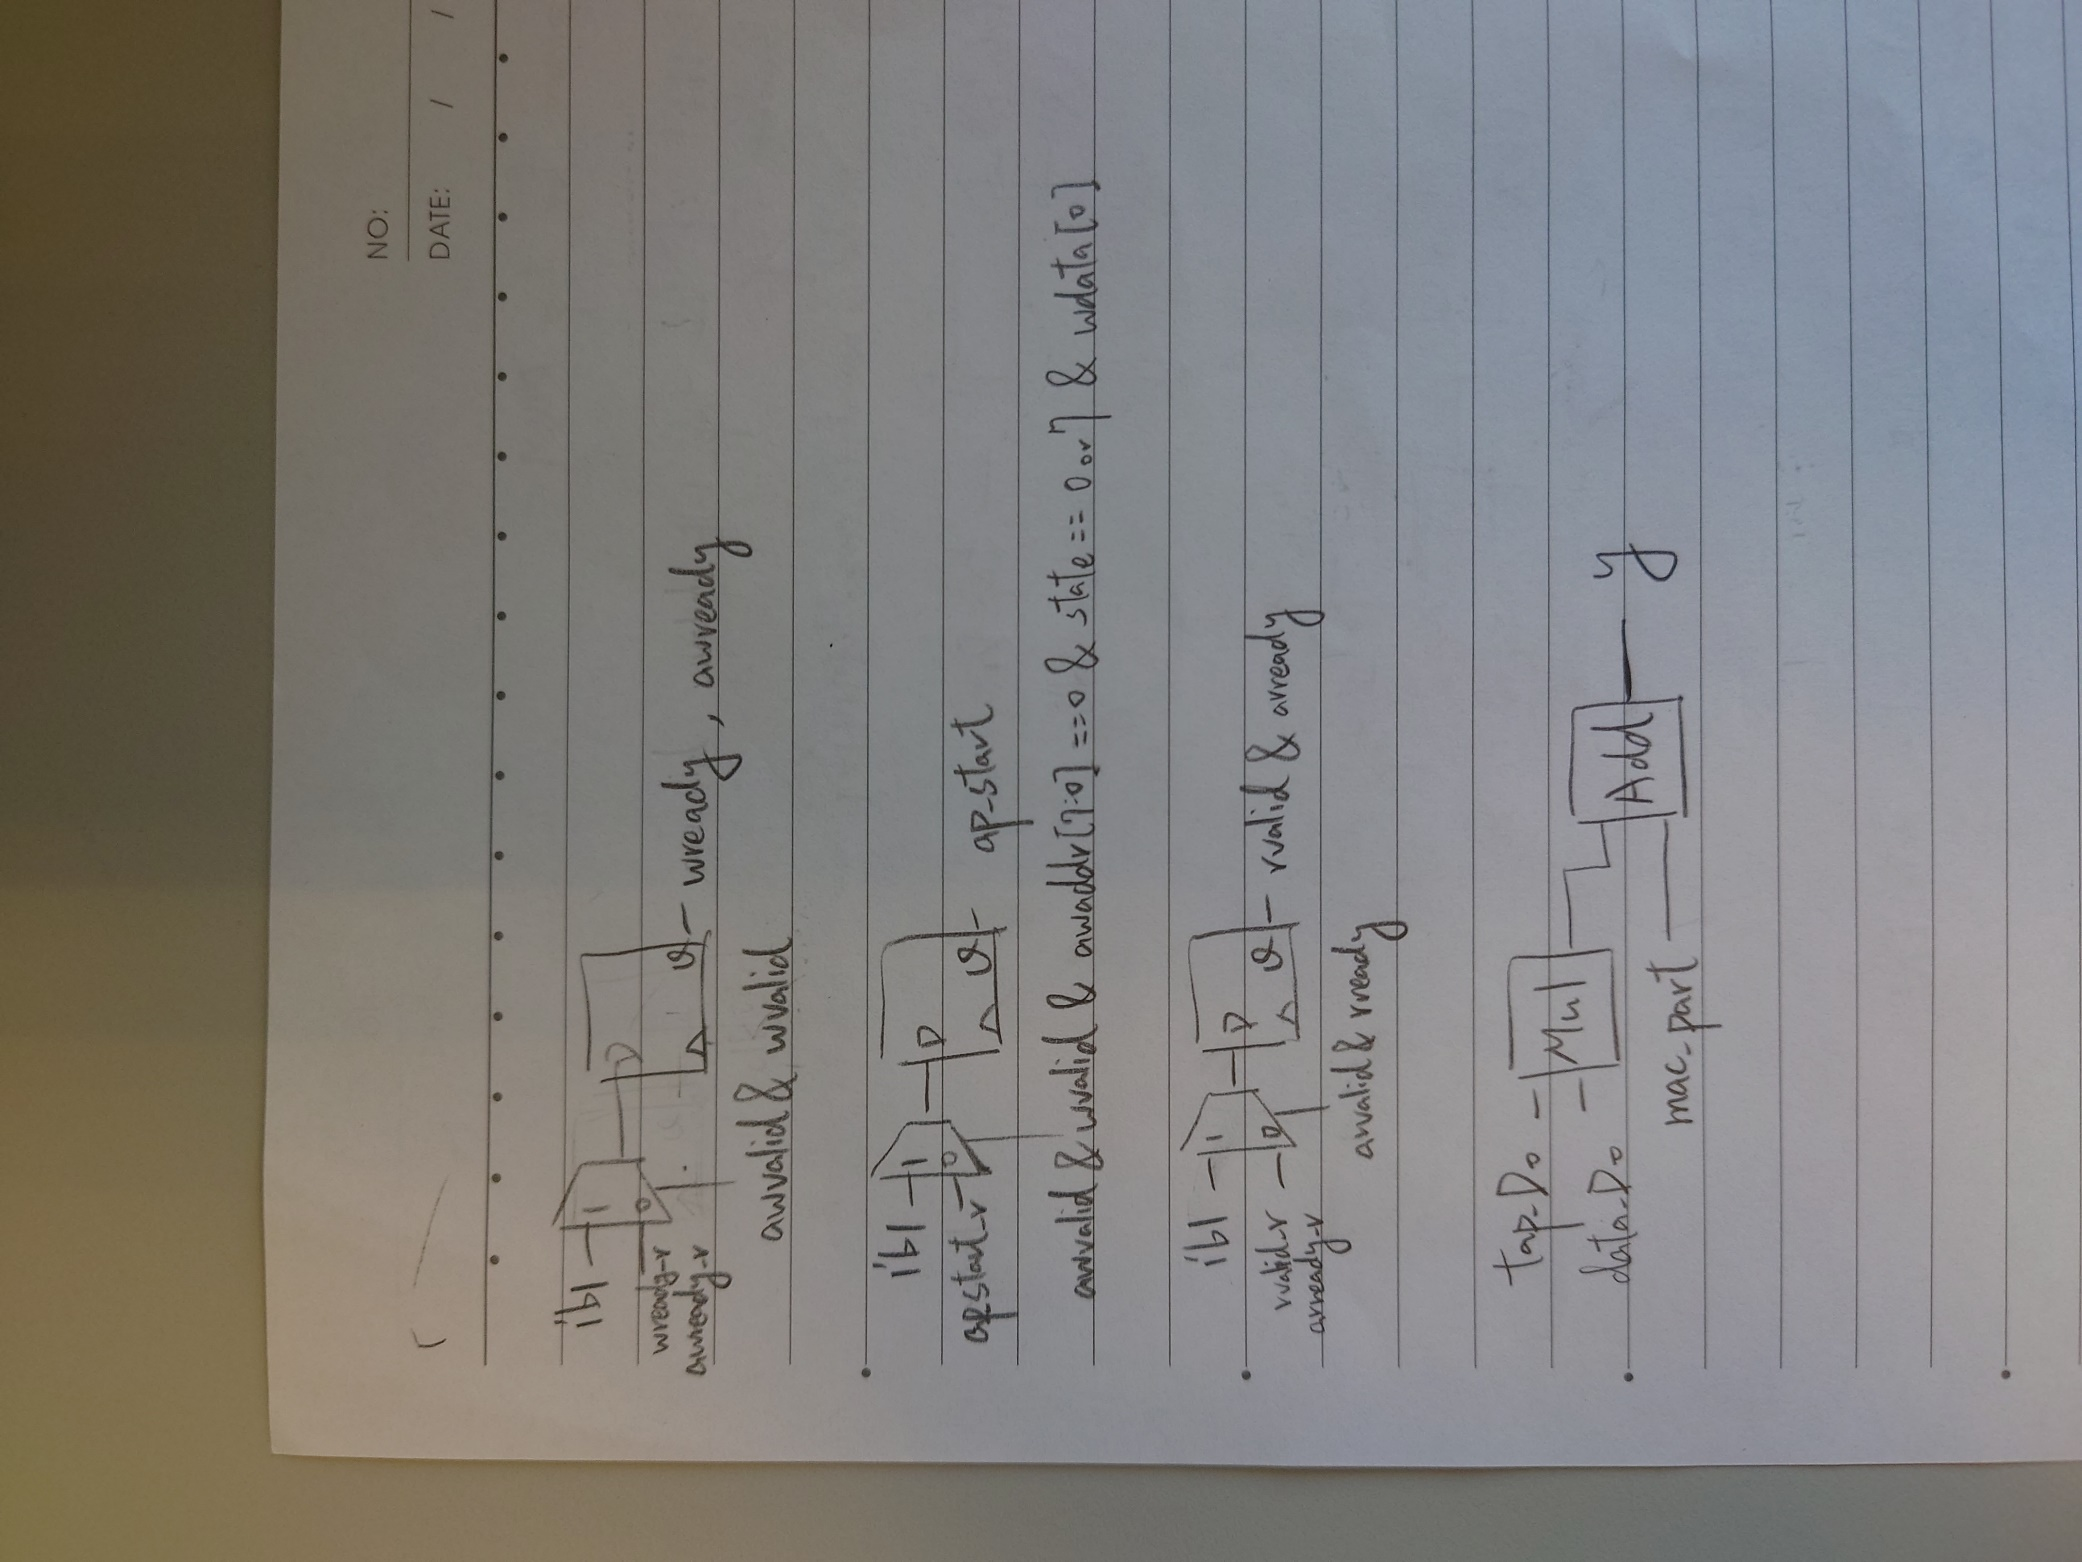 NO:
DATE: / /
1'b1
1
D
wready_r
awready_r
0
Q
wready, awready
awvalid & wvalid
1'b1
1
D
ap_start_r
0
Q
ap_start
awvalid & wvalid & awaddr[7:0]==0 & state==0 or 7 & wdata[0]
1'b1
1
D
rvalid_r
arready_r
0
Q
rvalid & arready
arvalid & rready
tap_Do
data_Do
Mul
mac_part
Add
y